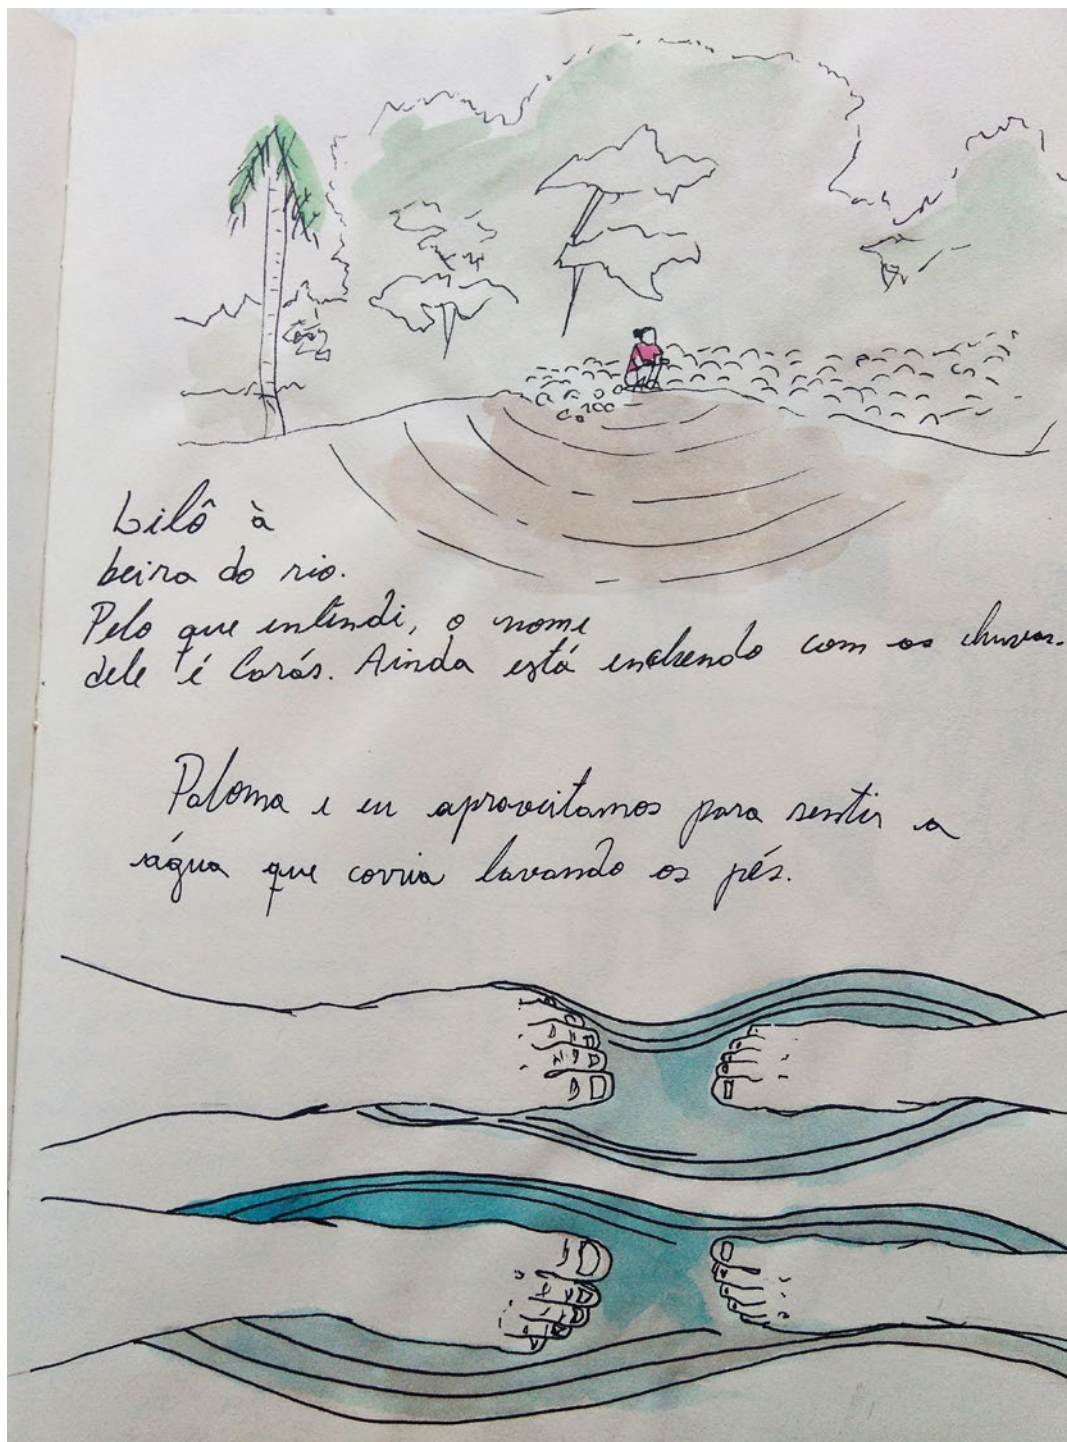 Lilô à
beira do rio.
Pelo que entendi, o nome
dele é Carás. Ainda está enchendo com as chuvas.
Paloma e eu aproveitamos para sentir a
água que corria lavando os pés.